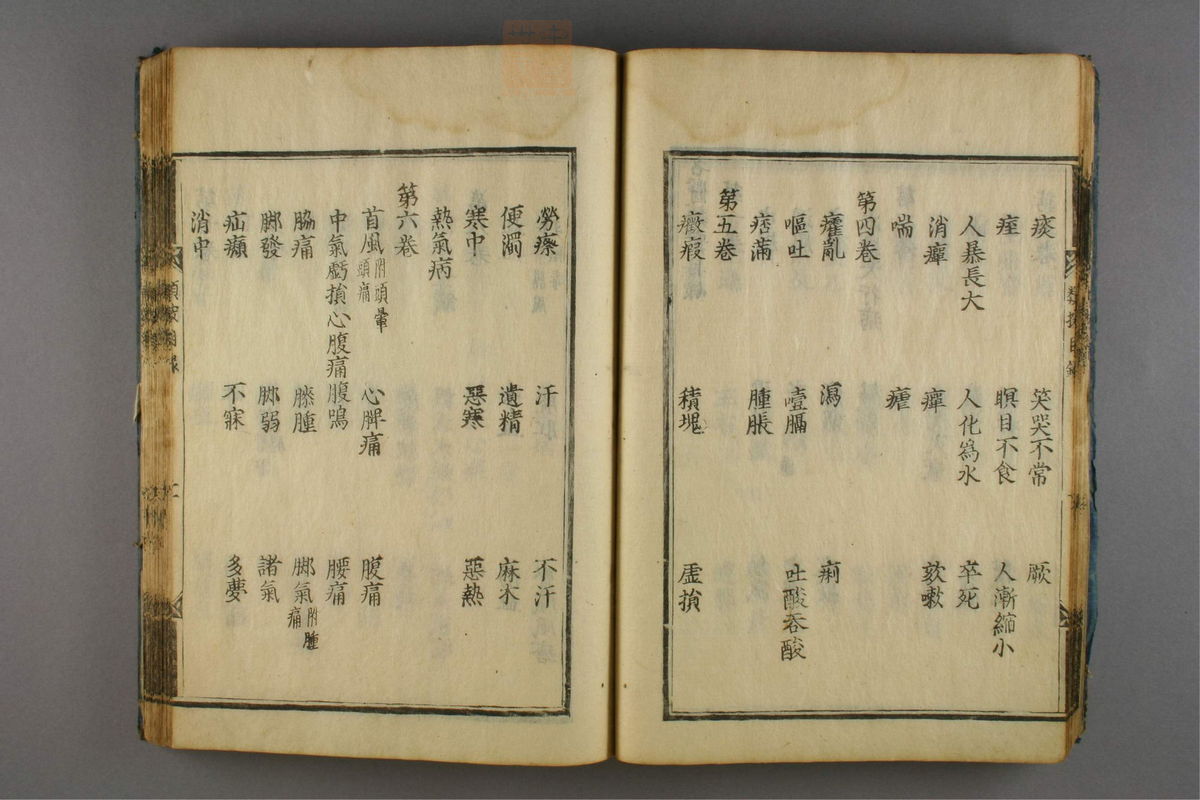 痰 笑哭不常 厥
痓 瞑目不食 人漸縮小
人暴長大 人化爲水 卒死
消癉 癉 欬嗽
喘 瘧
第四卷
癨亂 瀉 痢
嘔吐 噎膈 吐酸吞酸
痞滿 腫脹
第五卷
癥瘕 積塊 虛損
勞瘵 汗 不汗
便濁 遺精 麻木
寒中 惡寒 惡熱
熱氣病
第六卷
首風附頭暈頭痛 心脾痛 腹痛
中氣虧損心腹痛 腹鳴 腰痛
脇痛 腰腫 脚氣附腫痛
脚發 脚弱 諸氣
疝㿗 不寐 多夢
消中